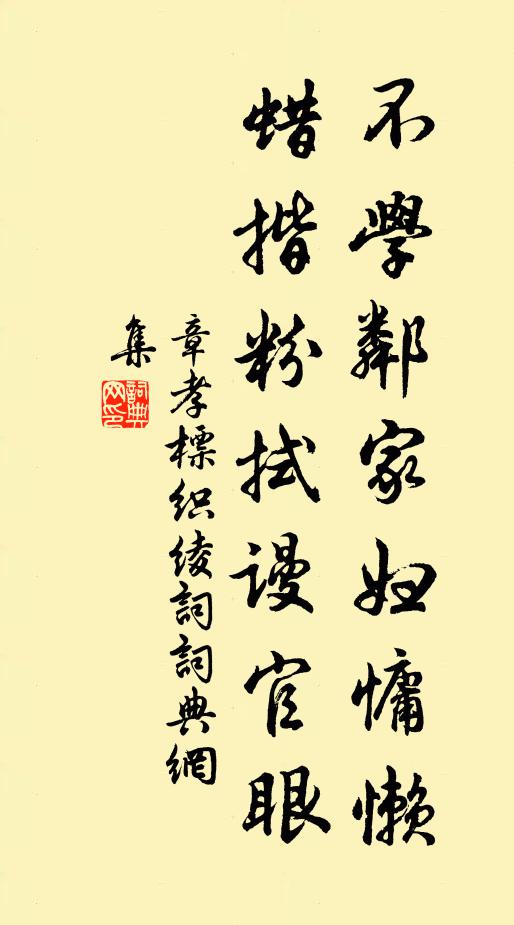 不學鄰家妇慵懶
蜡揩粉拭謾官眼
章孝標织绫詞詞典網
集
詞典网印